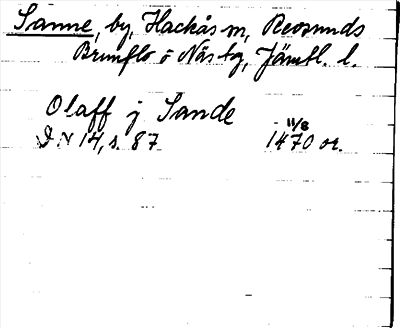 Sanne, by, Hackås sn, Revsunds
Brunflo o Näs tg, Jämtl. l.
Olaff j Sande
11/8
J N 14, s. 87 1470 or.